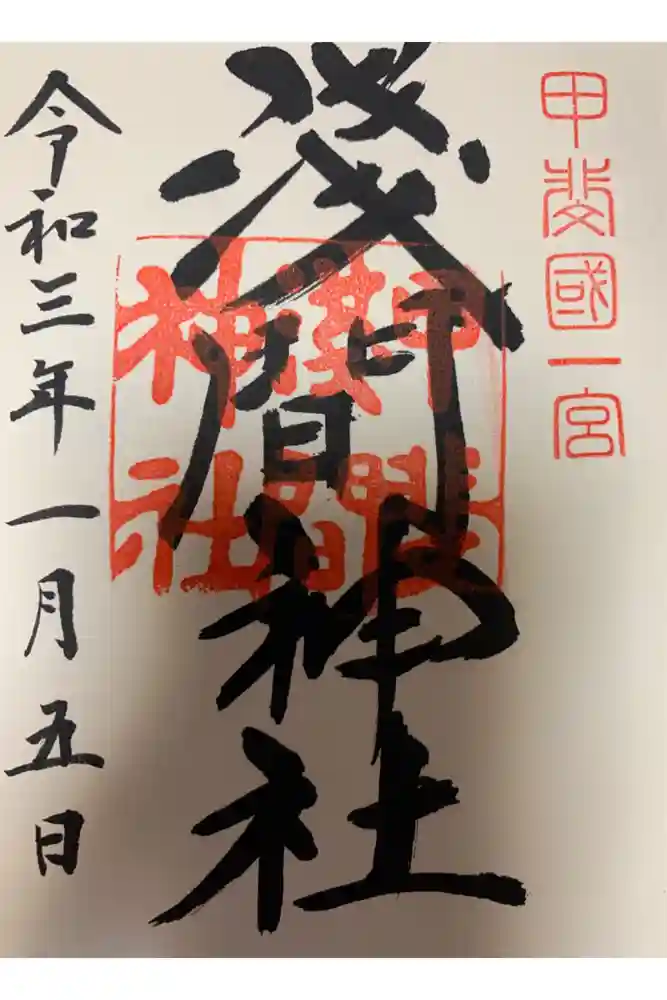 甲斐國一宮
淺間神社
淺間
神社
令和三年一月五日